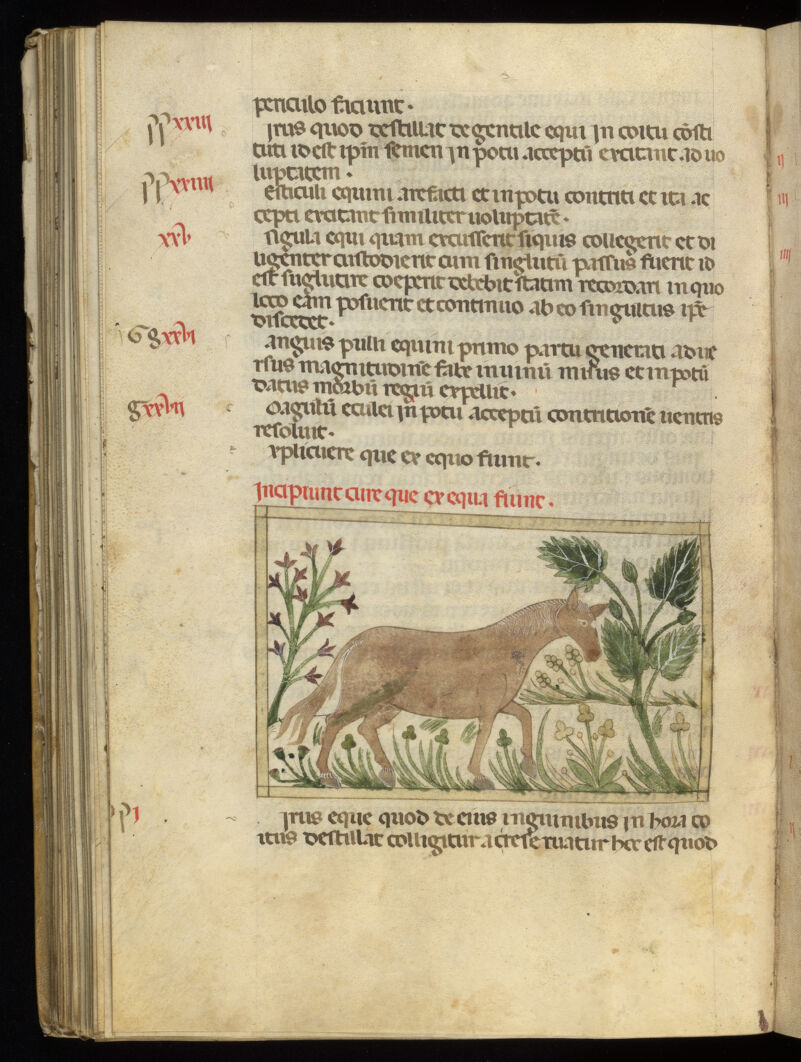 periculo faciunt.
ṗṗ xxiii
jrus quod destillat de gentile equi jn coitu cõsti
tuti id est ipm̃ semen jn potu acceptũ excitant ad uo
luptatem.
ṗṗ xxiiii
esticuli equini arefacti et in potu contriti et ita ac
cepti excitant similiter uoluptatẽ.
xxv
sigula equi quam excusserit siquis collegerit et di
ligenter custodierit cum singlutũ passus fuerit id
est suglutire coeperit debebit statim recordari in quo
loco eam posuerit et continuo ab eo singultus ipẽ
discedet.
Gg xxvi
anguis pulli equini primo partu generati aduer
rsus magnitudinẽ fabe in uinũ missus et in potũ
datus morbũ regiũ expellit.
g xxvii
oagulũ eculei jn potu acceptũ contritionẽ uentris
resoluit.
xplicuere que ex equo fiunt.
Jncipiunt cure que ex equa fiunt.
pp i
jrus eque quod de eius inguinibus jn hora co
itus destillat colligitur ac reseruatur hec est quod